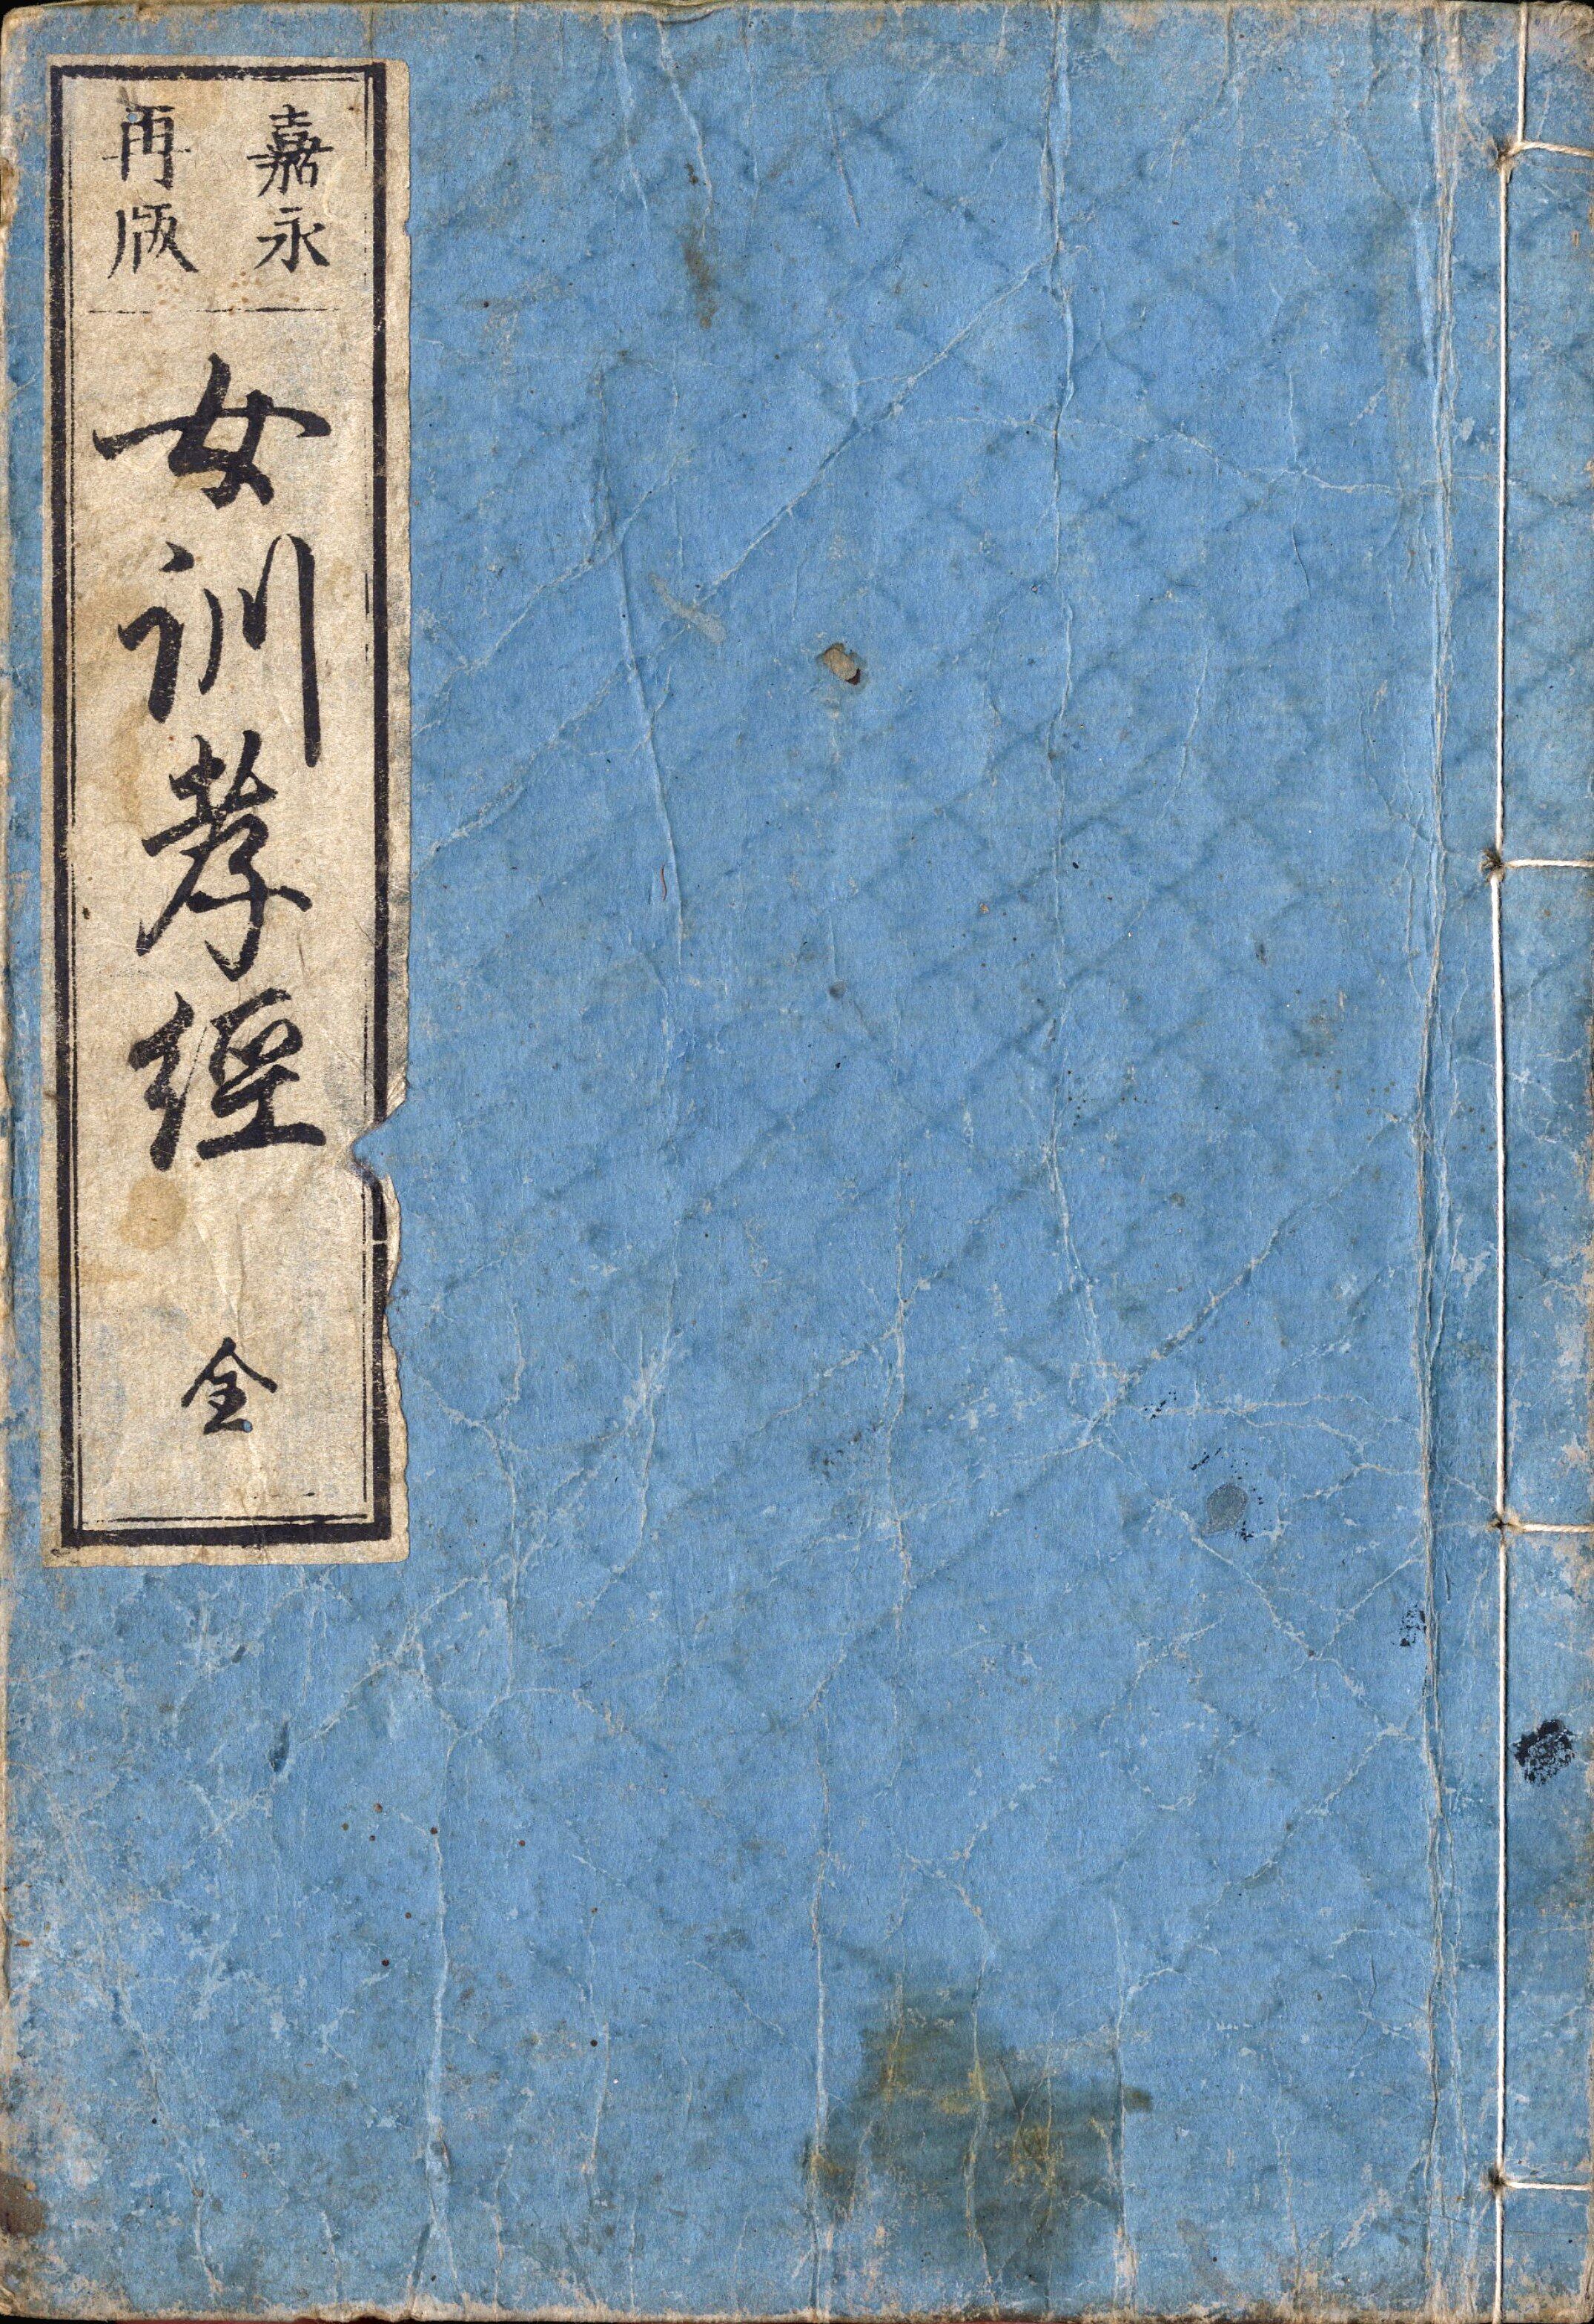 嘉永
再版
女訓孝經
全